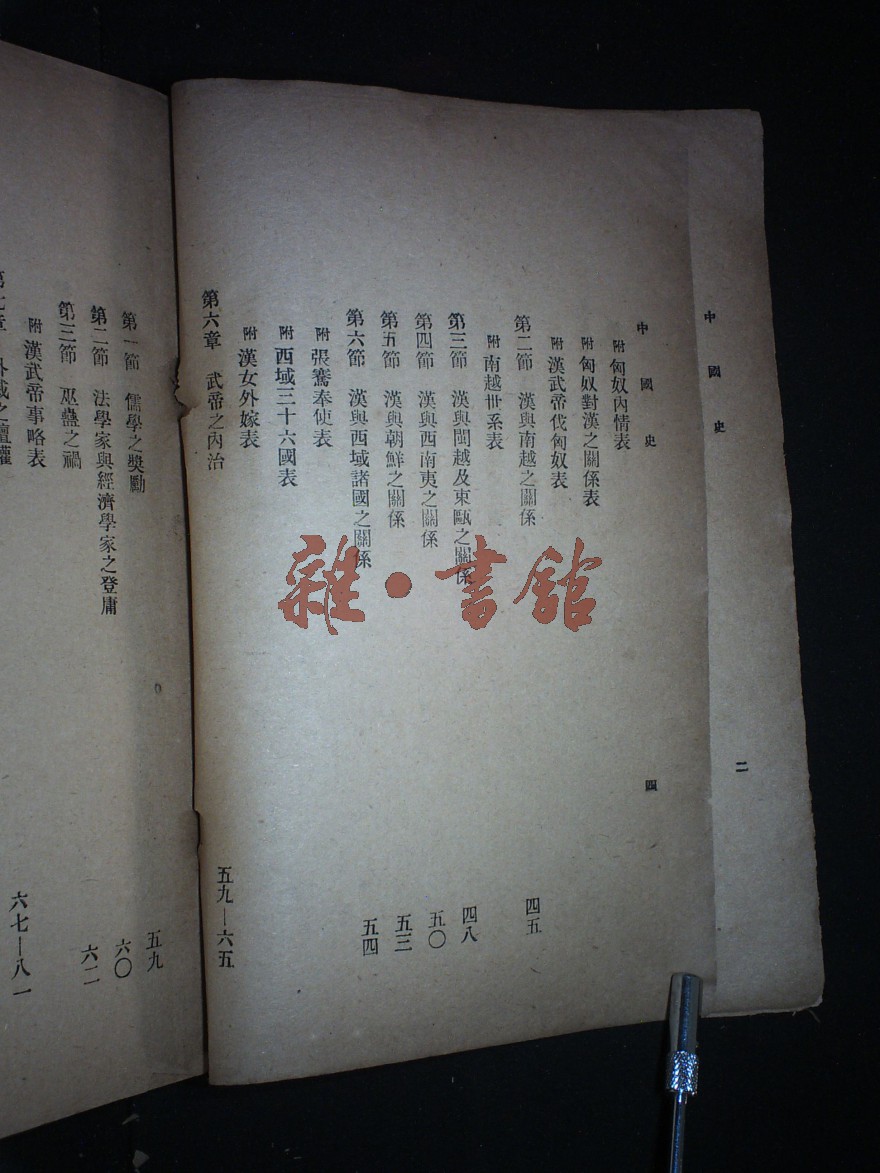 中國史
二
中國史
四
附 匈奴內情表
附 匈奴對漢之關係表
附 漢武帝伐匈奴表
第二節 漢與南越之關係 四五
附 南越世系表
第三節 漢與閩越及東甌之關係 四八
第四節 漢與西南夷之關係 五〇
第五節 漢與朝鮮之關係 五三
第六節 漢與西域諸國之關係 五四
附 張騫奉使表
附 西域三十六國表
附 漢女外嫁表
第六章 武帝之內治 五九—六五
第一節 儒學之獎勵 五九
第二節 法學家與經濟學家之登庸 六〇
第三節 巫蠱之禍 六二
附 漢武帝事略表
第七章 外戚之擅權 六七—八一
雜·書館